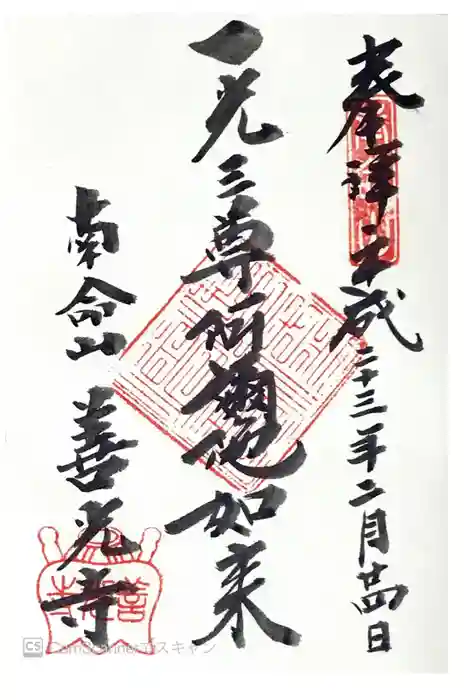 奉拝 平成二十三年二月廿四日
一光三尊阿彌陀如来
南命山 善光寺
善光寺
CS CamScannerでスキャン